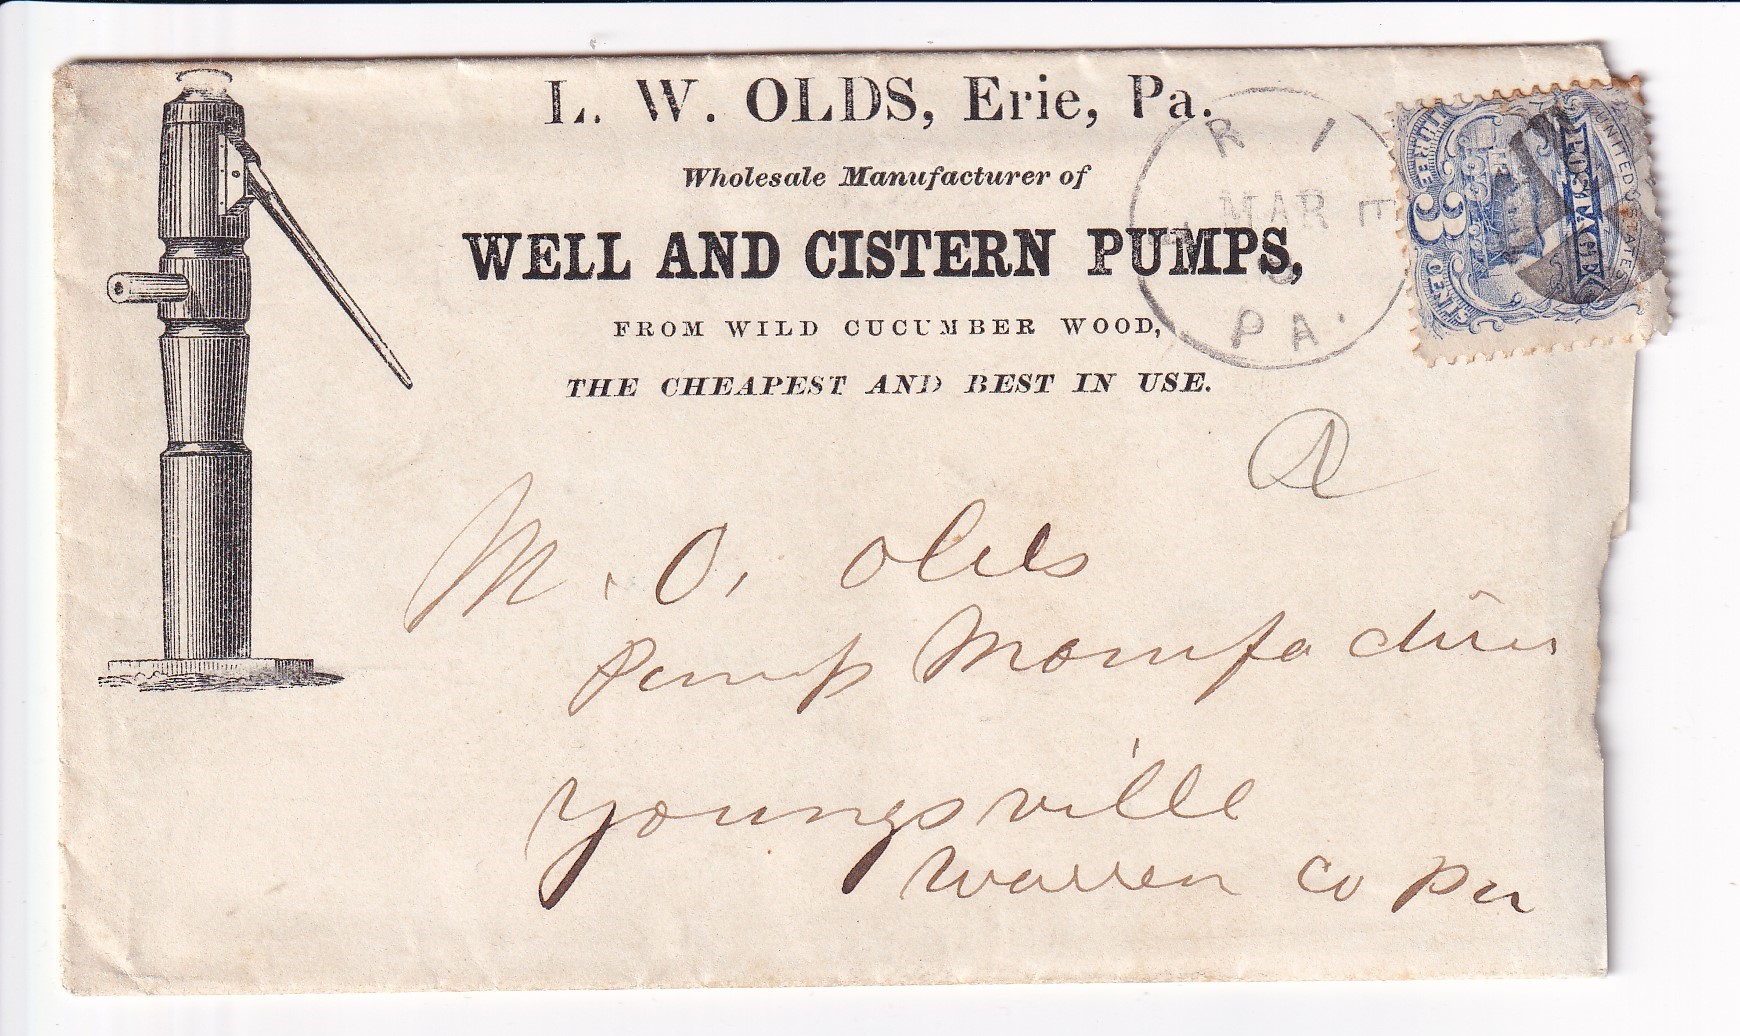 L. W. OLDS, Erie, Pa.
Wholesale Manufacturer of
WELL AND CISTERN PUMPS,
FROM WILD CUCUMBER WOOD,
THE CHEAPEST AND BEST IN USE.
ERIE
MAR
PA.
UNITED STATES
POSTAGE
THREE 3 CENTS
M. O. Olds
Pump Manufacturer
Youngsville
Warren Co Pa